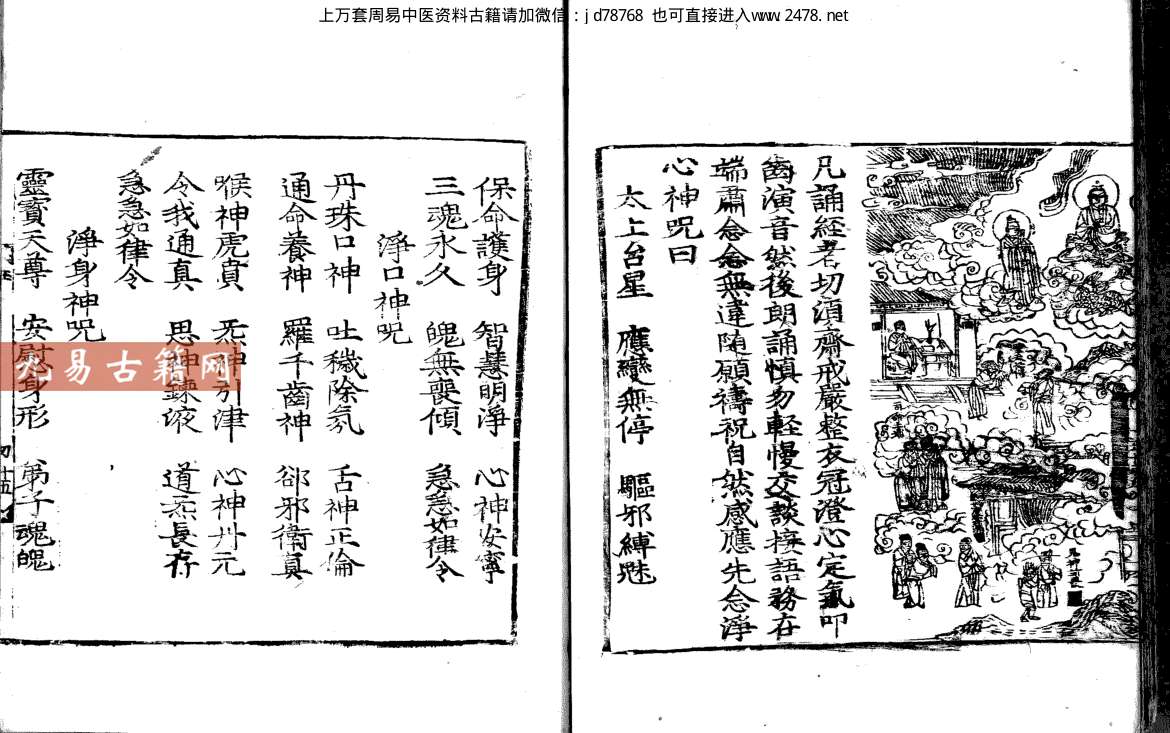 上万套周易中医资料古籍请加微信：jd78768 也可直接进入www.2478.net
凡誦經者切湏齋戒嚴整衣冠澄心定氣叩
齒演音然後朗誦慎勿輕慢交談接語務在
端肅念念無違随願禱祝自然感應先念淨
心神咒曰
太上台星 應變無停 驅邪縛魅
保命護身 智慧明淨 心神安寧
三魂永久 魄無喪傾 急急如律令
淨口神咒
丹珠口神 吐穢除氛 舌神正倫
通命養神 羅千齒神 郤邪衛真
喉神虎賁 炁神引津 心神丹元
令我通真 思神鍊液 道炁長存
急急如律令
淨身神咒
靈寳天尊 安慰身形 弟子魂魄
易古籍网